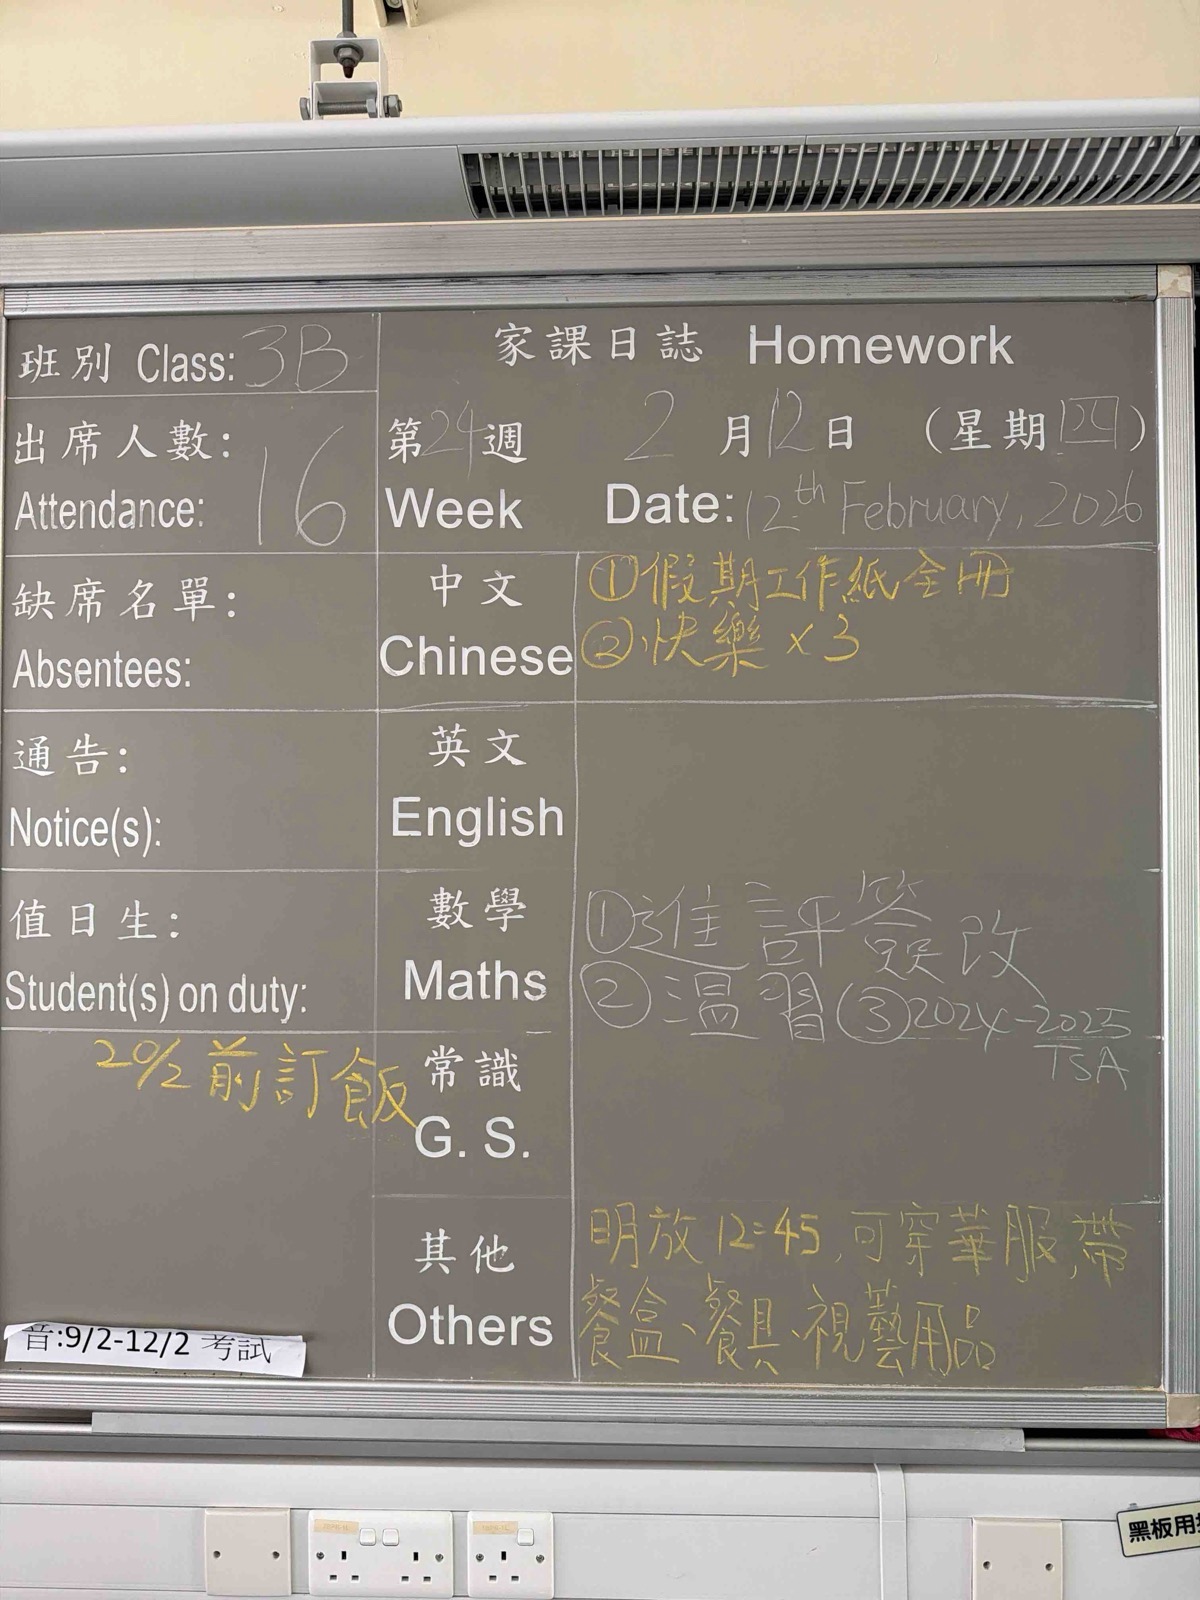 班別 Class: 3B
出席人數: 16
Attendance:
缺席名單:
Absentees:
通告:
Notice(s):
值日生:
Student(s) on duty:
20/2 前訂飯
音:9/2-12/2 考試
家課日誌 Homework
第24週 2月12日 (星期四)
Week Date: 12th February, 2026
中文 ①假期工作紙全冊
Chinese ②快樂 x 3
英文
English
數學 ①進評簽改
Maths ②溫習 ③2024-2025
TSA
常識
G. S.
其他 明放 12:45, 可穿華服, 帶
Others 餐盒、餐具、視藝用品
黑板用